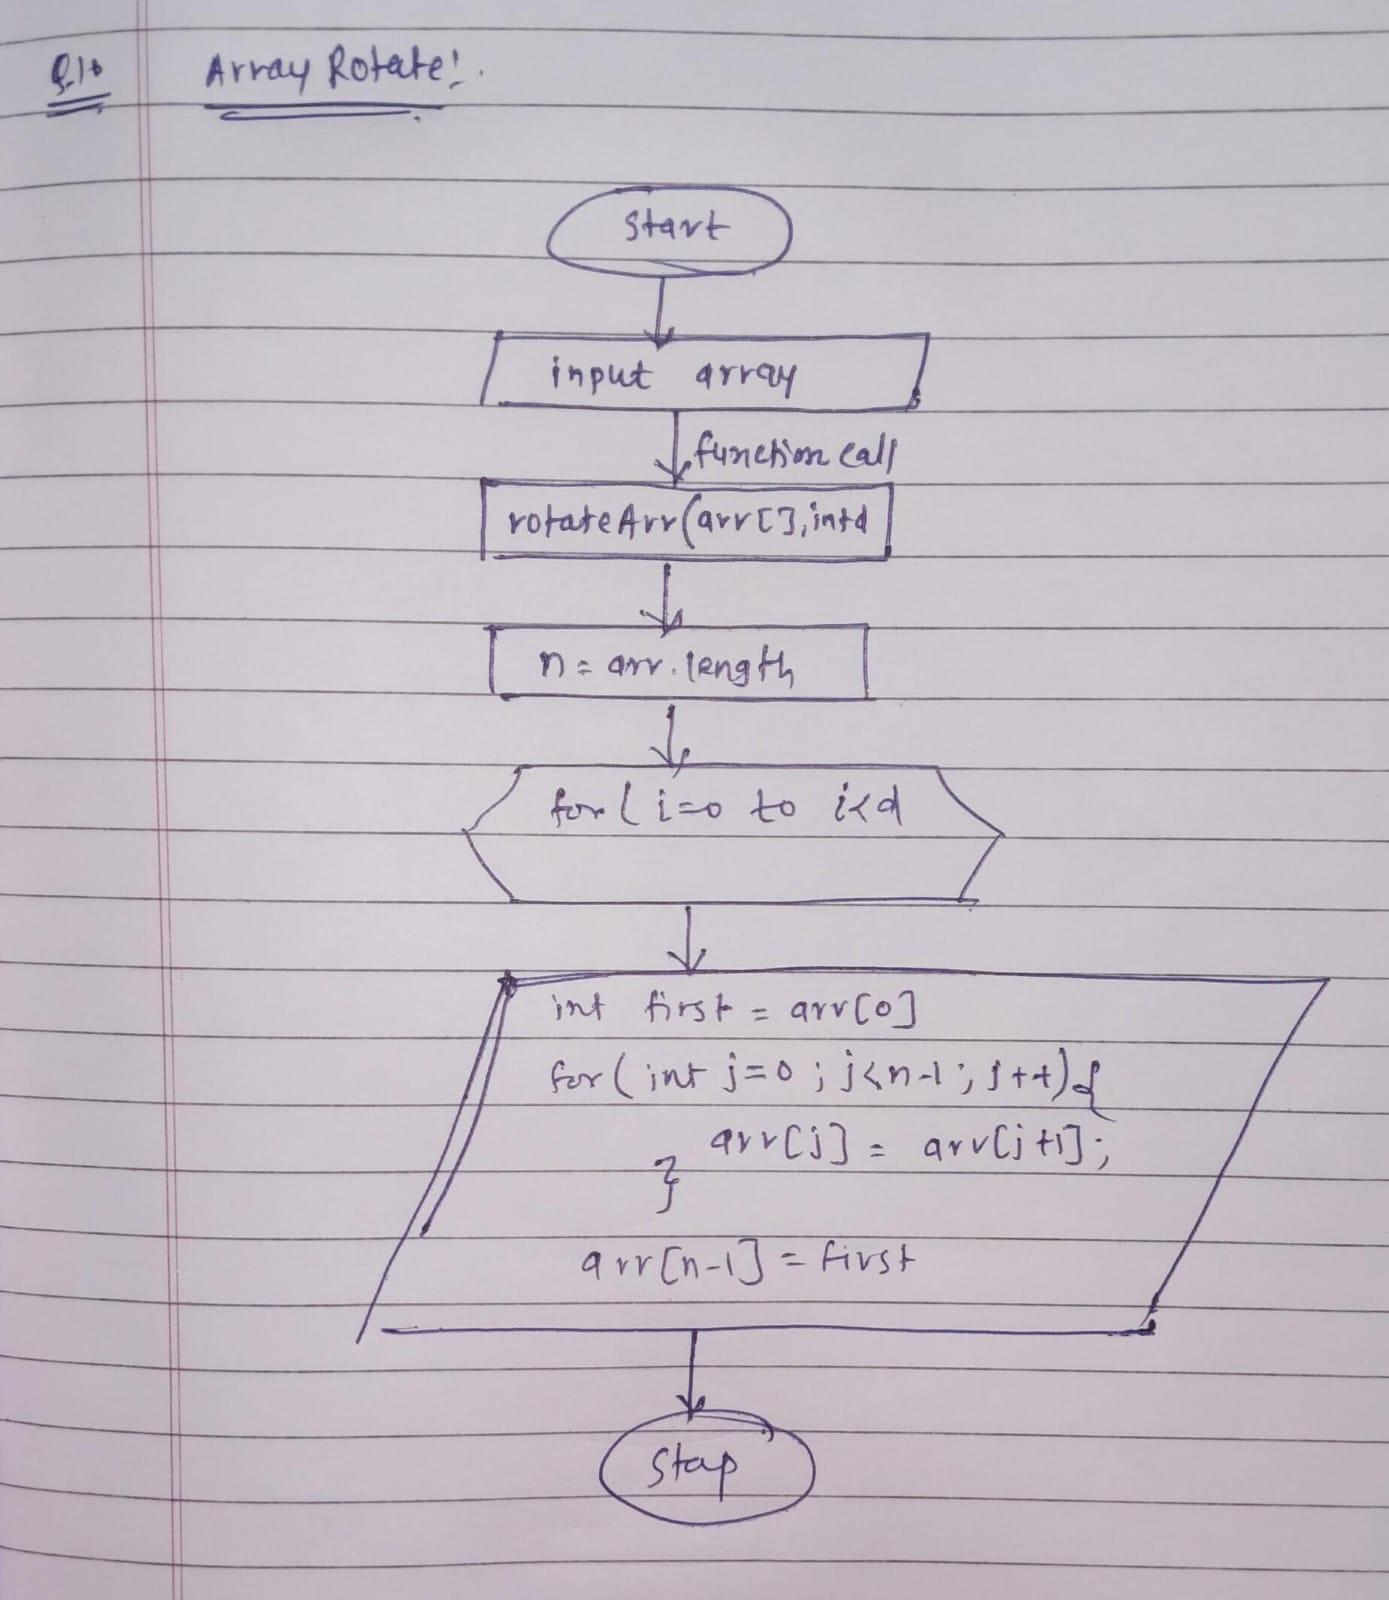 Array Rotate:
Start
input array
function call
rotateArr(arr[], int d
n = arr.length
for( i=0 to i<d
int first = arr[0]
for( int j=0 ; j<n-1 ; j++){
arr[j] = arr[j+1];
}
arr[n-1] = first
Stop